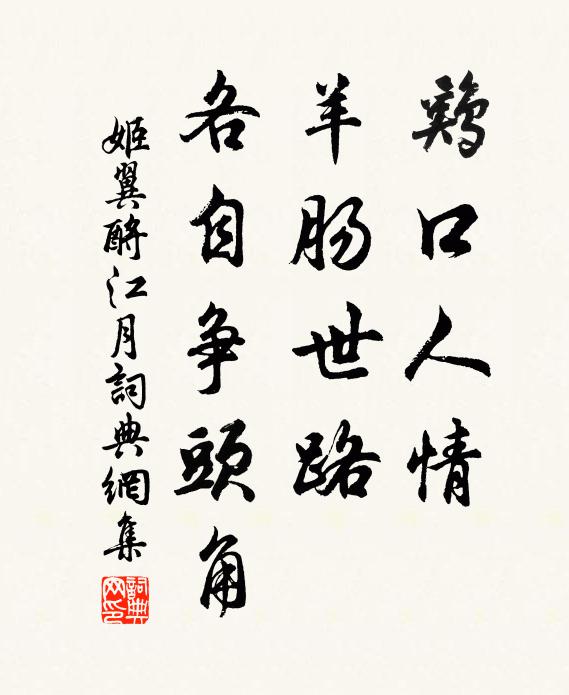 鷄口人情
羊腸世路
各自争頭角
姬翼酹江月詞典網集
詞典網印